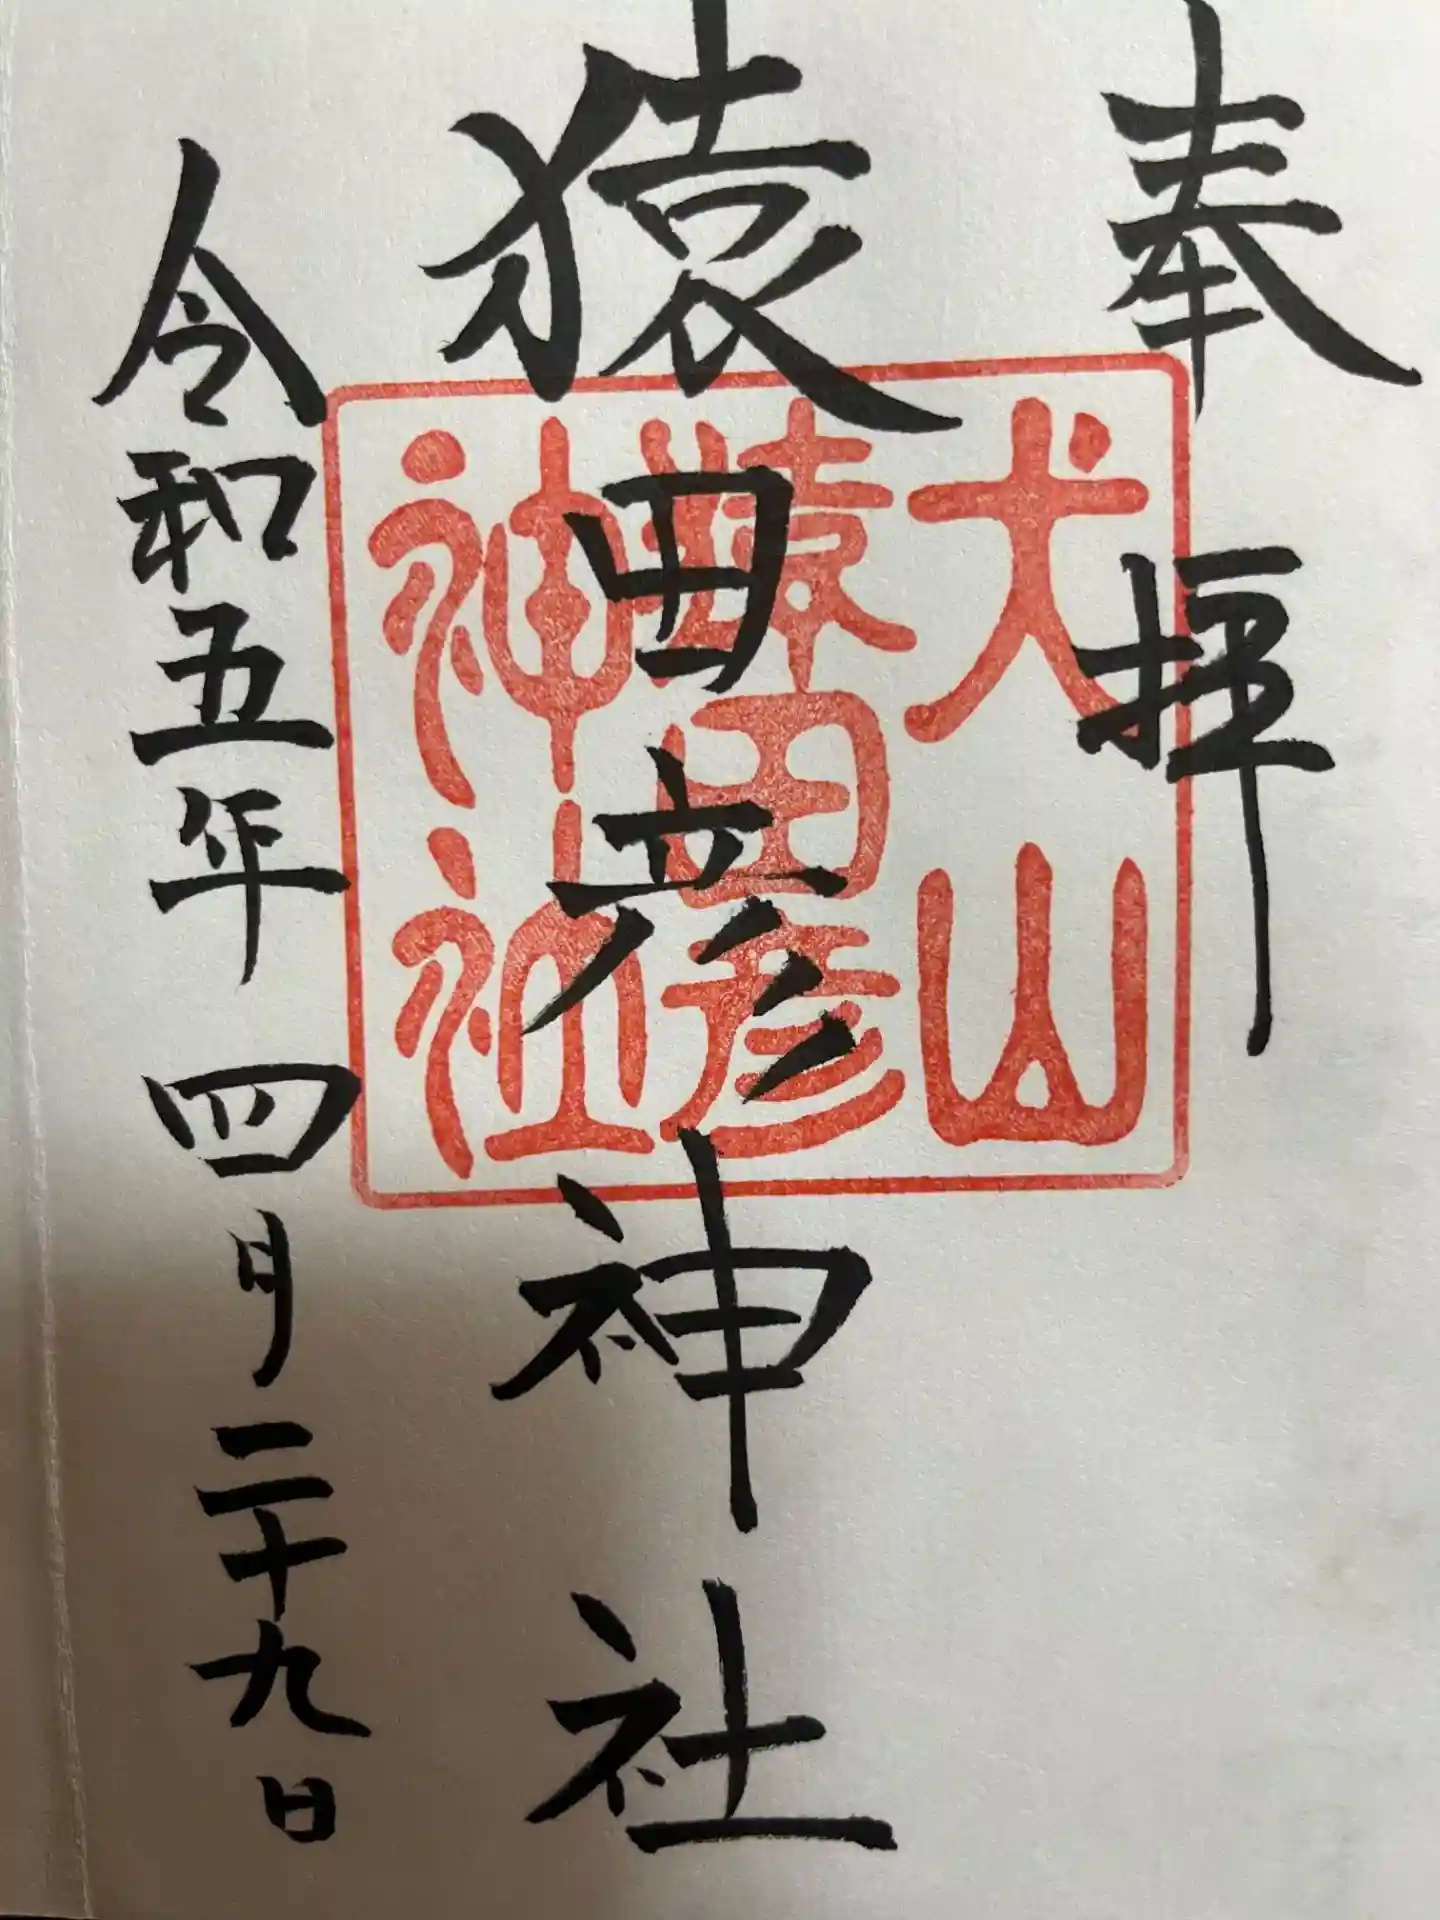 奉拝
犬山
猿田彦
神社
猿田彦神社
令和五年四月二十九日